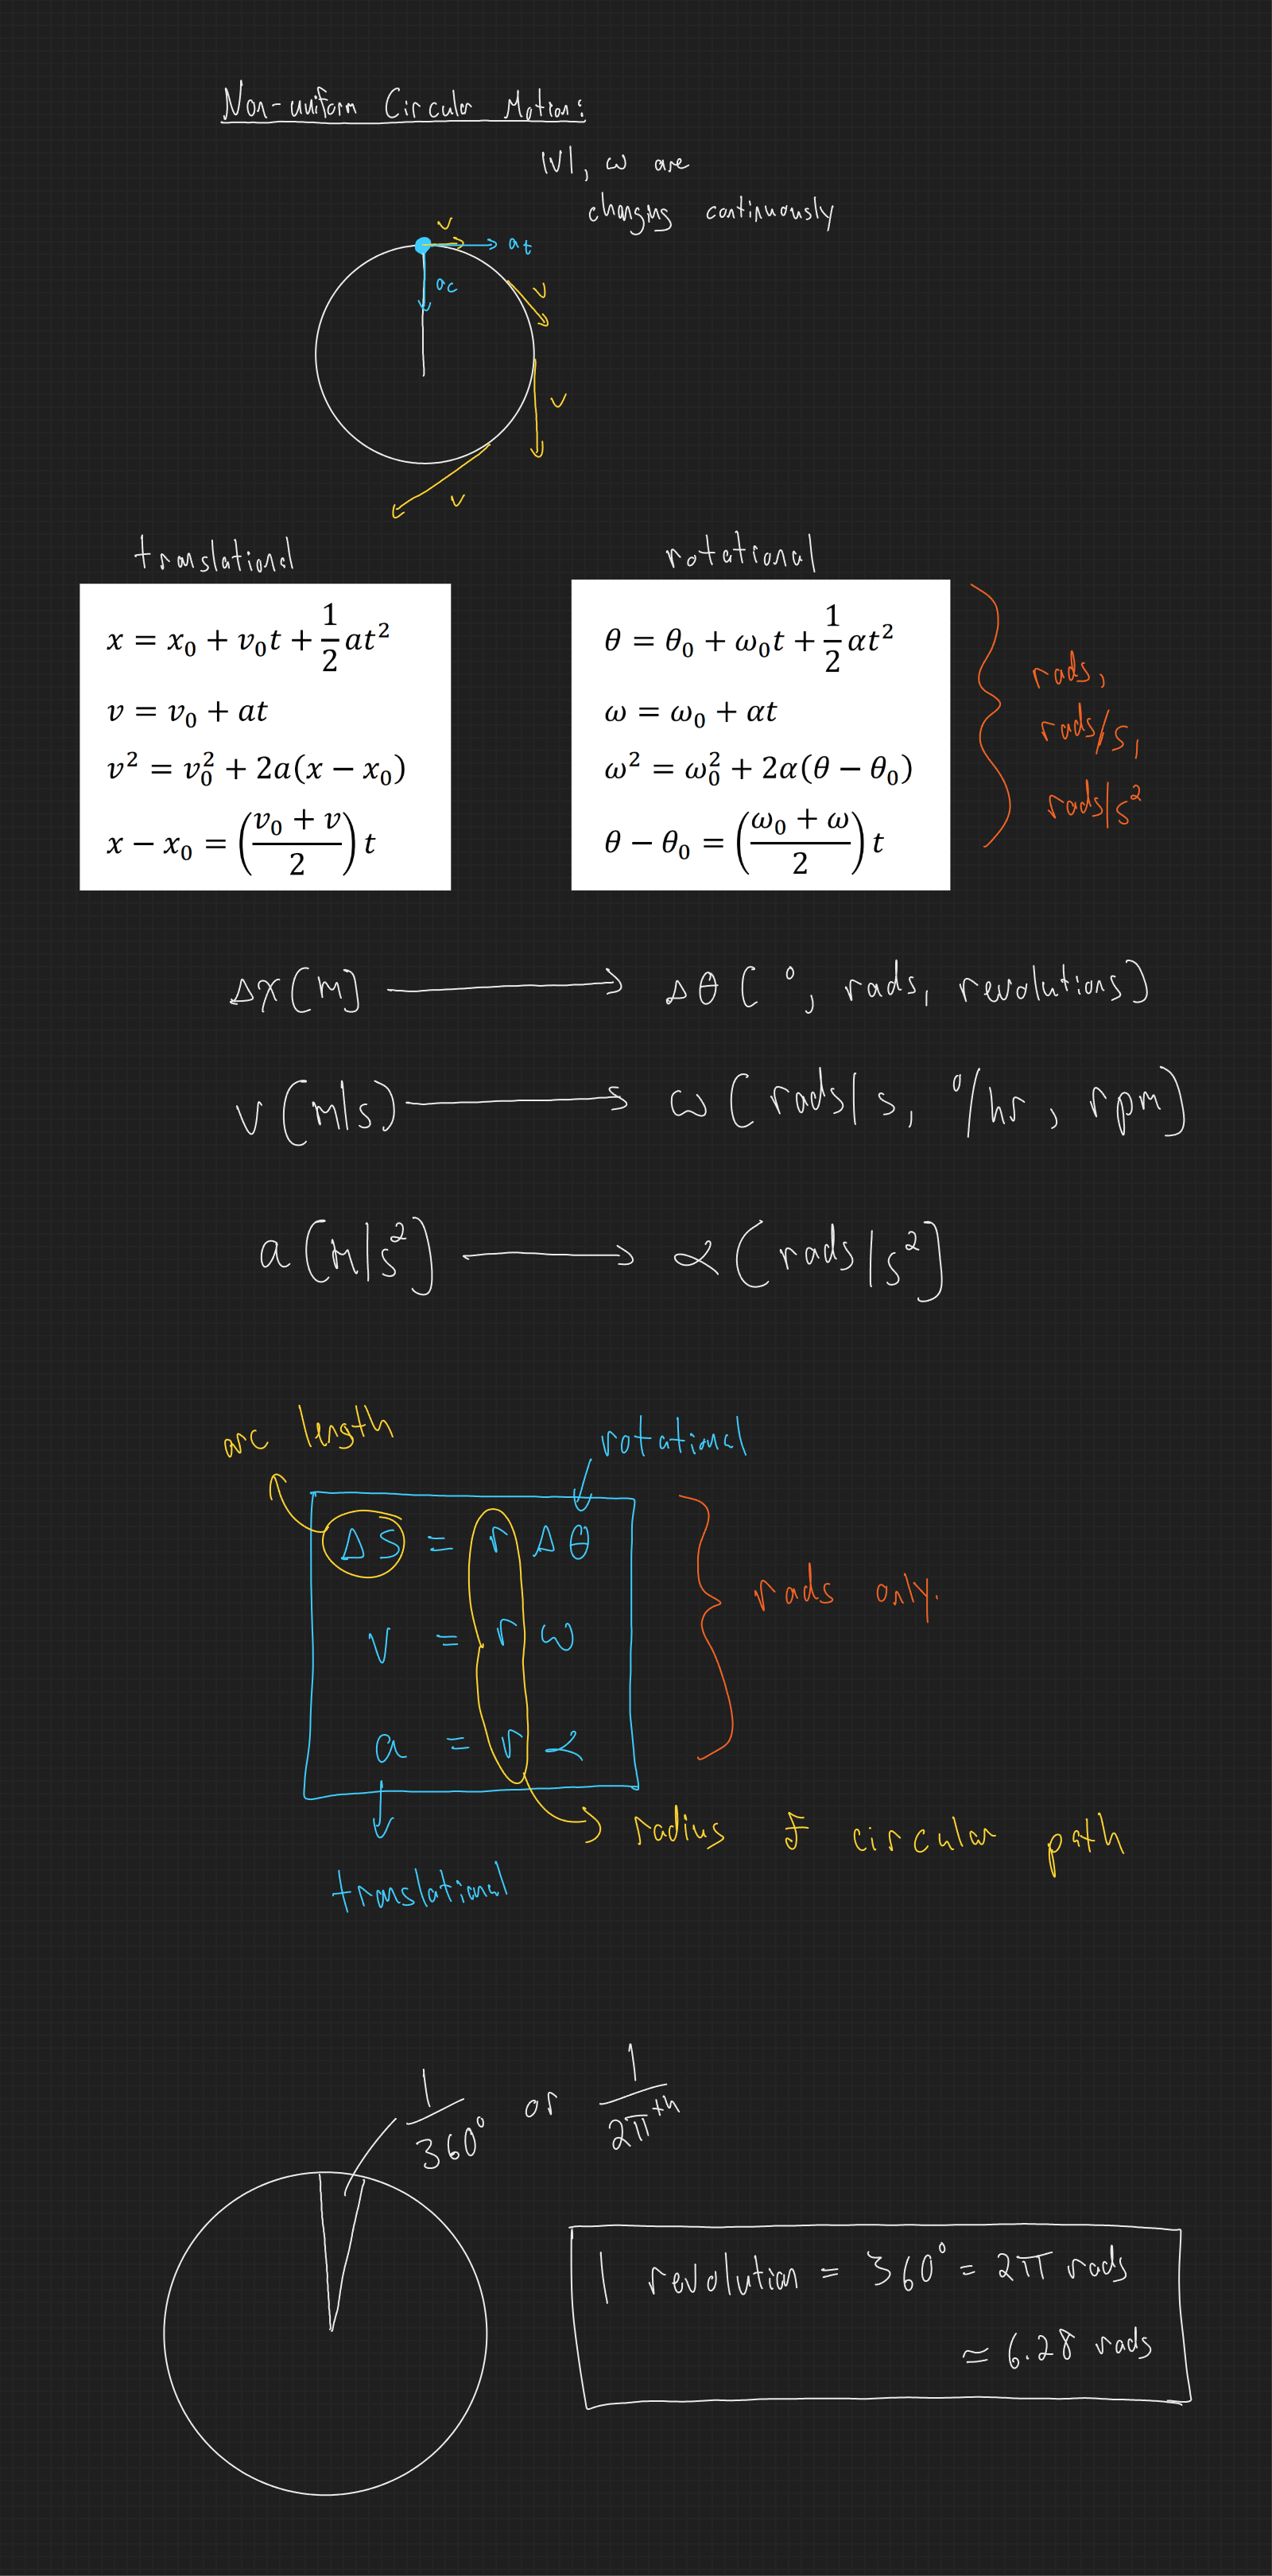 Non-uniform Circular Motion:
|V|, ω are
changing continuously
v
a_t
a_c
v
v
v
translational
rotational
x = x₀ + v₀t + 1/2 at²
v = v₀ + at
v² = v₀² + 2a(x − x₀)
x − x₀ = ((v₀ + v)/2) t
θ = θ₀ + ω₀t + 1/2 αt²
ω = ω₀ + αt
ω² = ω₀² + 2α(θ − θ₀)
θ − θ₀ = ((ω₀ + ω)/2) t
rads,
rads/s,
rads/s²
Δx (m) → Δθ (°, rads, revolutions)
v (m/s) → ω (rads/s, °/hr, rpm)
a (m/s²) → α (rads/s²)
arc length
rotational
Δs = r Δθ
v = r ω
a = r α
rads only.
radius of circular path
translational
1/360° or 1/2π th
1 revolution = 360° = 2π rads
≈ 6.28 rads